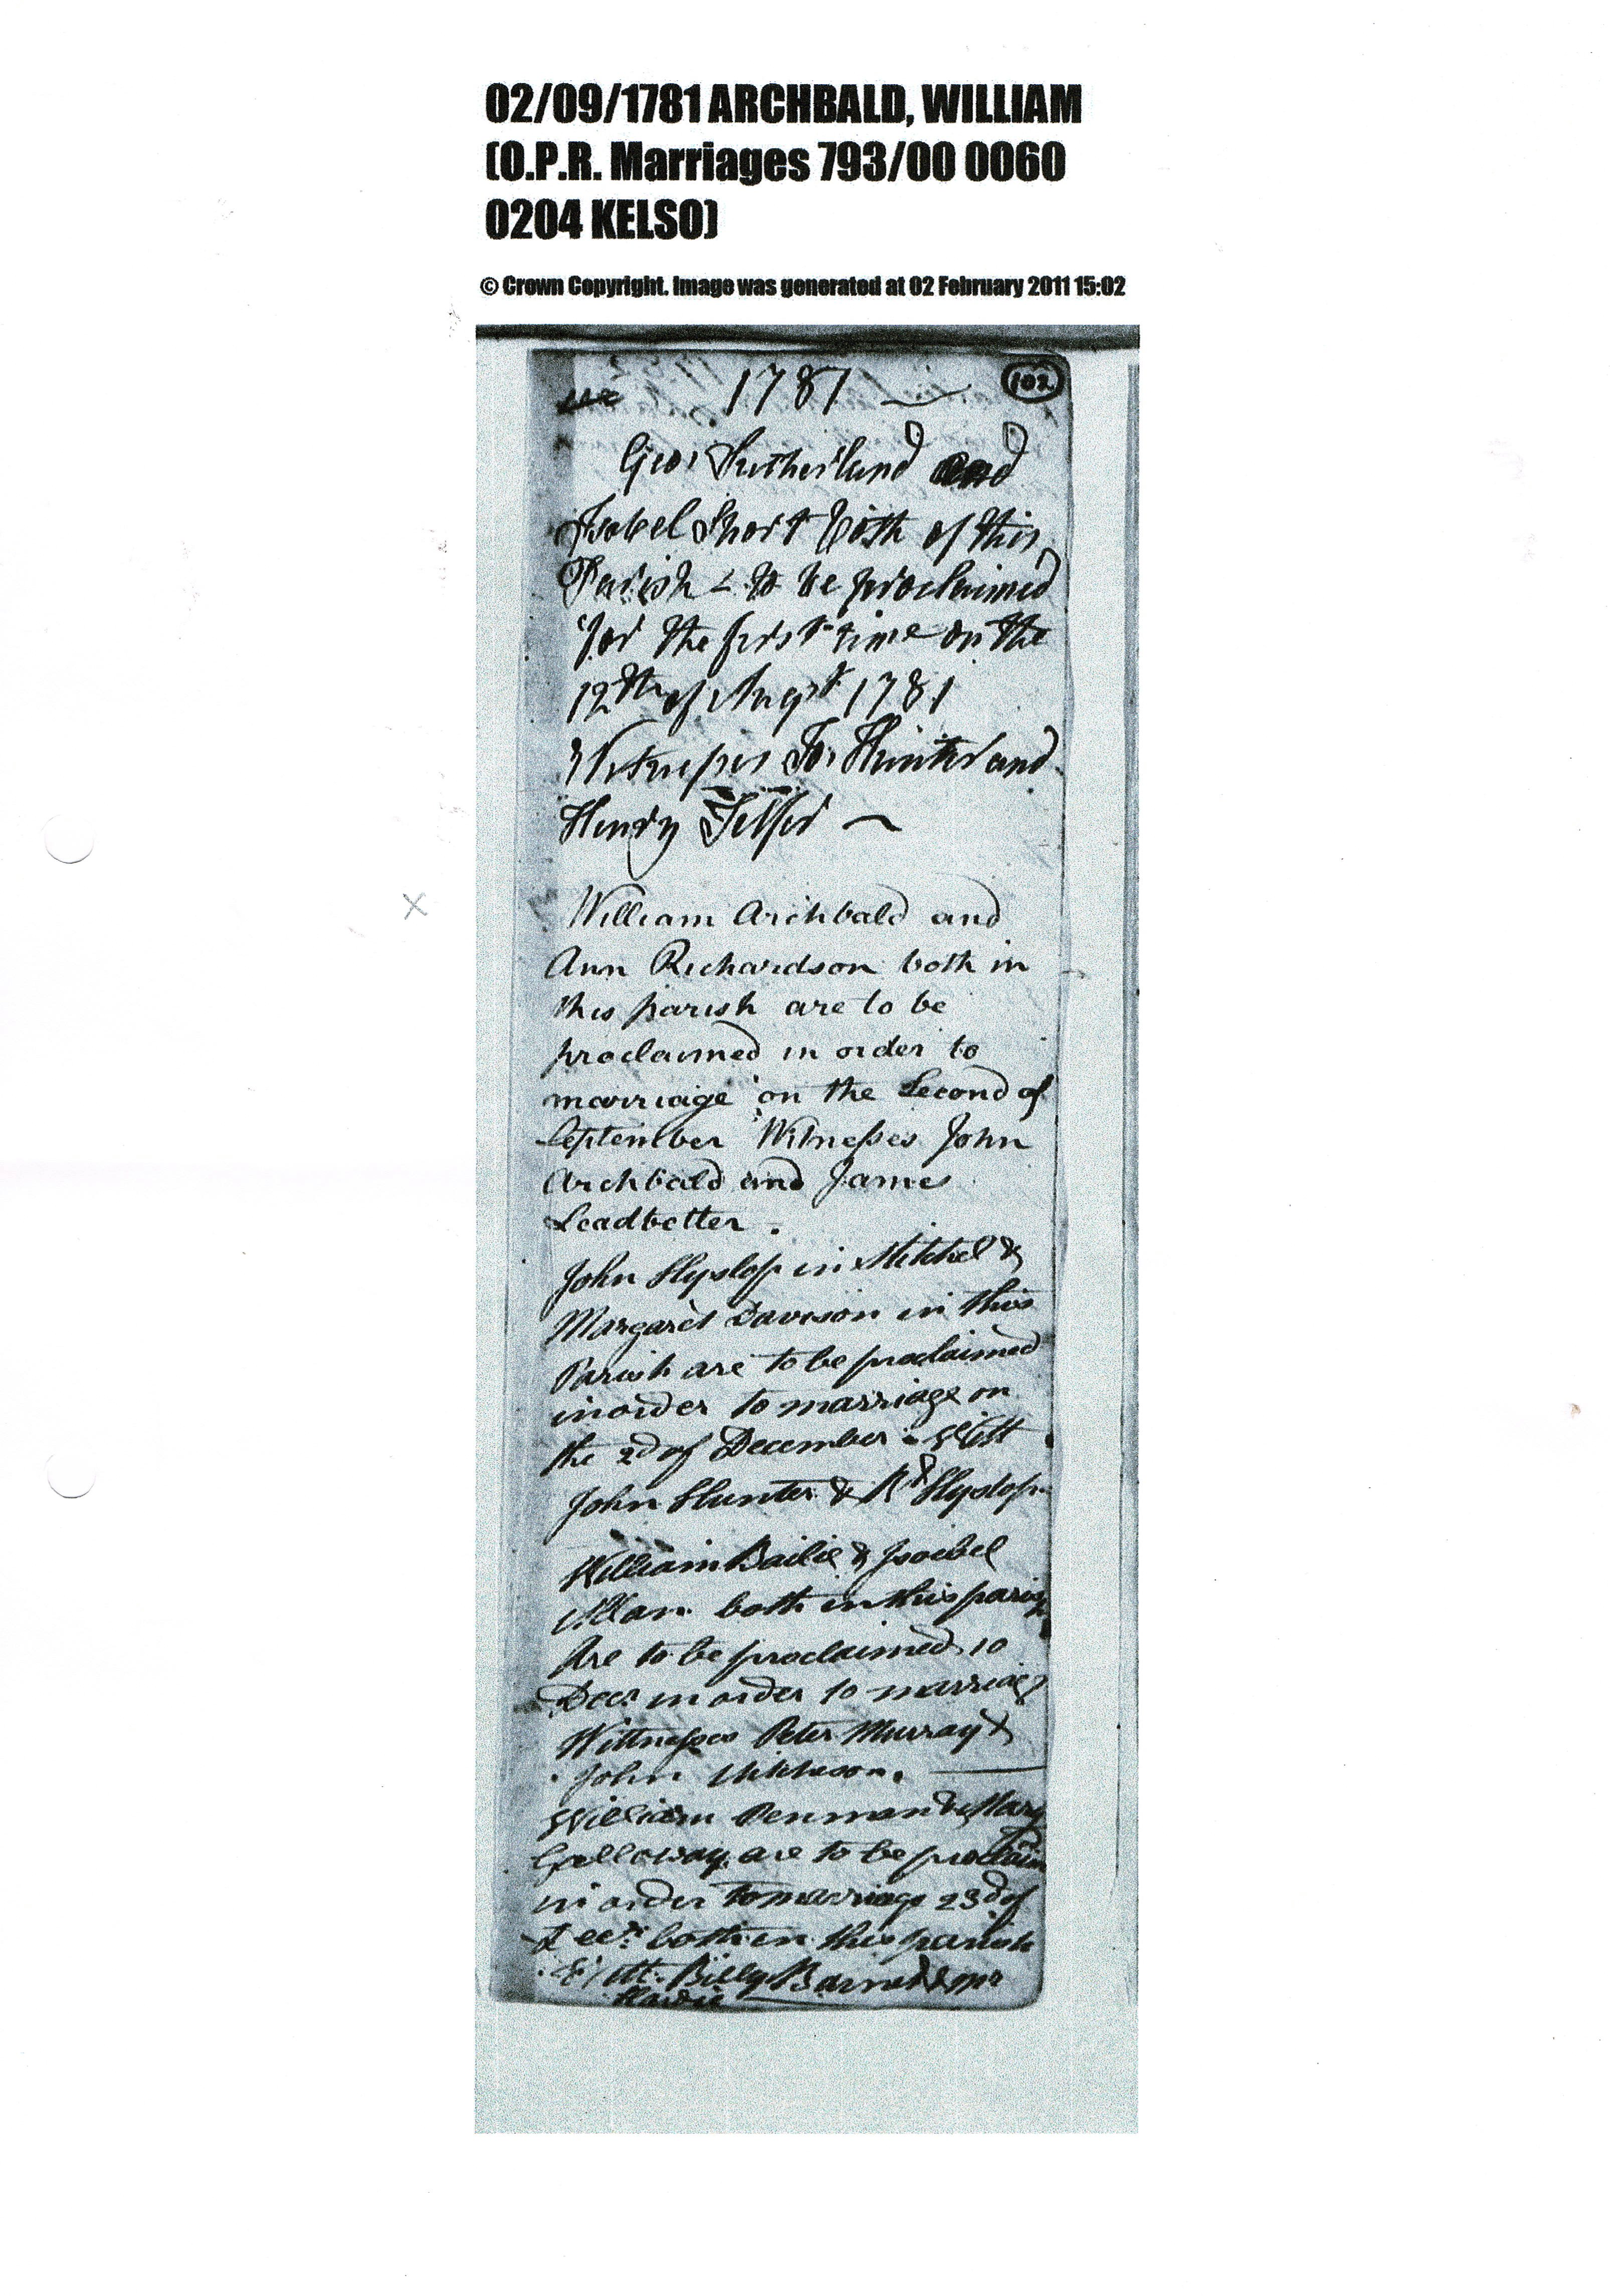 02/09/1781 ARCHBALD, WILLIAM
(O.P.R. Marriages 793/00 0060
0204 KELSO)
© Crown Copyright. Image was generated at 02 February 2011 15:02
1781
102
Geo: Sutherland and
Isobel Short both of this
Parish to be proclaimed
for the first time on the
12th of Augst 1781
Witnesses Jo: Hunter and
Henry Telfer
William Archbald and
Ann Richardson both in
this parish are to be
proclaimed in order to
marriage on the Second of
September Witnesses John
Archbald and James
Leadbetter.
John Hyslop in Stitchel &
Margaret Davison in this
Parish are to be proclaimed
in order to marriage on
the 2d of December Witt
John Hunter & Rt Hyslop
William Bailie & Isobel
Allan both in this parish
Are to be proclaimed 10
Decr in order to marriage
Wittnesses Peter Murray &
John Aitcheson.
William Penman & Mary
Galloway are to be proclaim
in order to marriage 23d of
Decr both in this parish
Witt. Billy Barnet & Mr